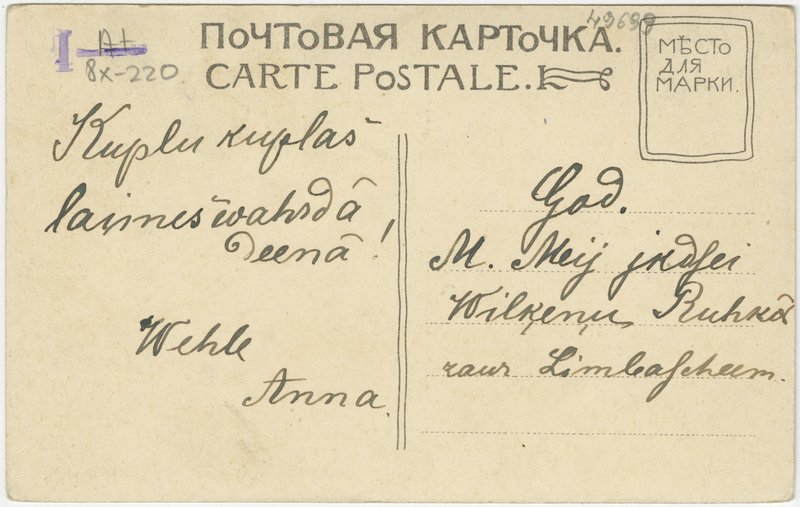 49699
I At
8x-220
ПОЧТОВАЯ КАРТОЧКА.
CARTE POSTALE.
МѢСТО
ДЛЯ
МАРКИ.
Kuplu kuplaš
laimes wahrdā
deenā!
Wehle
Anna.
God.
M. Meij jkdsei
Wilķeņu Ruhkā
zaur Limbascheem.